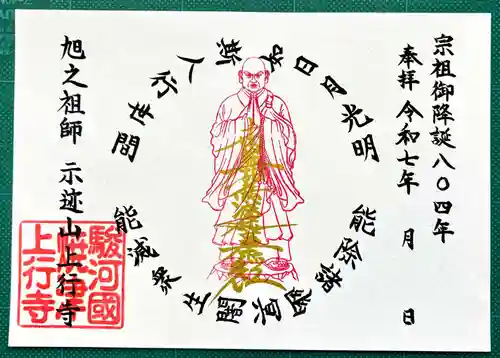 宗祖御降誕八〇四年
奉拝 令和七年 月 日
如日月光明
能除諸幽冥
斯人行世間
能滅衆生闇
旭之祖師 示迹山上行寺
駿河國
上行寺